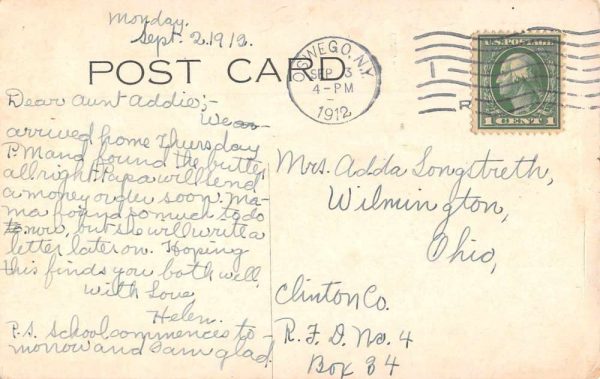 Monday.
Sept. 2. 1912.
POST CARD
OSWEGO, N.Y.
SEP 3
4-PM
1912
U.S. POSTAGE
1 CENT 1
Dear Aunt Addie;-
We
arrived home Thursday
P.M. and found the butter
all right. Papa will send
a money order soon. Ma-
ma found so much to do
now, but she will write a
letter later on. Hoping
this finds you both well,
With Love,
Helen.
P.S. School commences to-
morrow and I am glad.
Mrs. Adda Longstreth,
Wilmington,
Ohio,
Clinton Co.
R.F.D. No. 4
Box 84